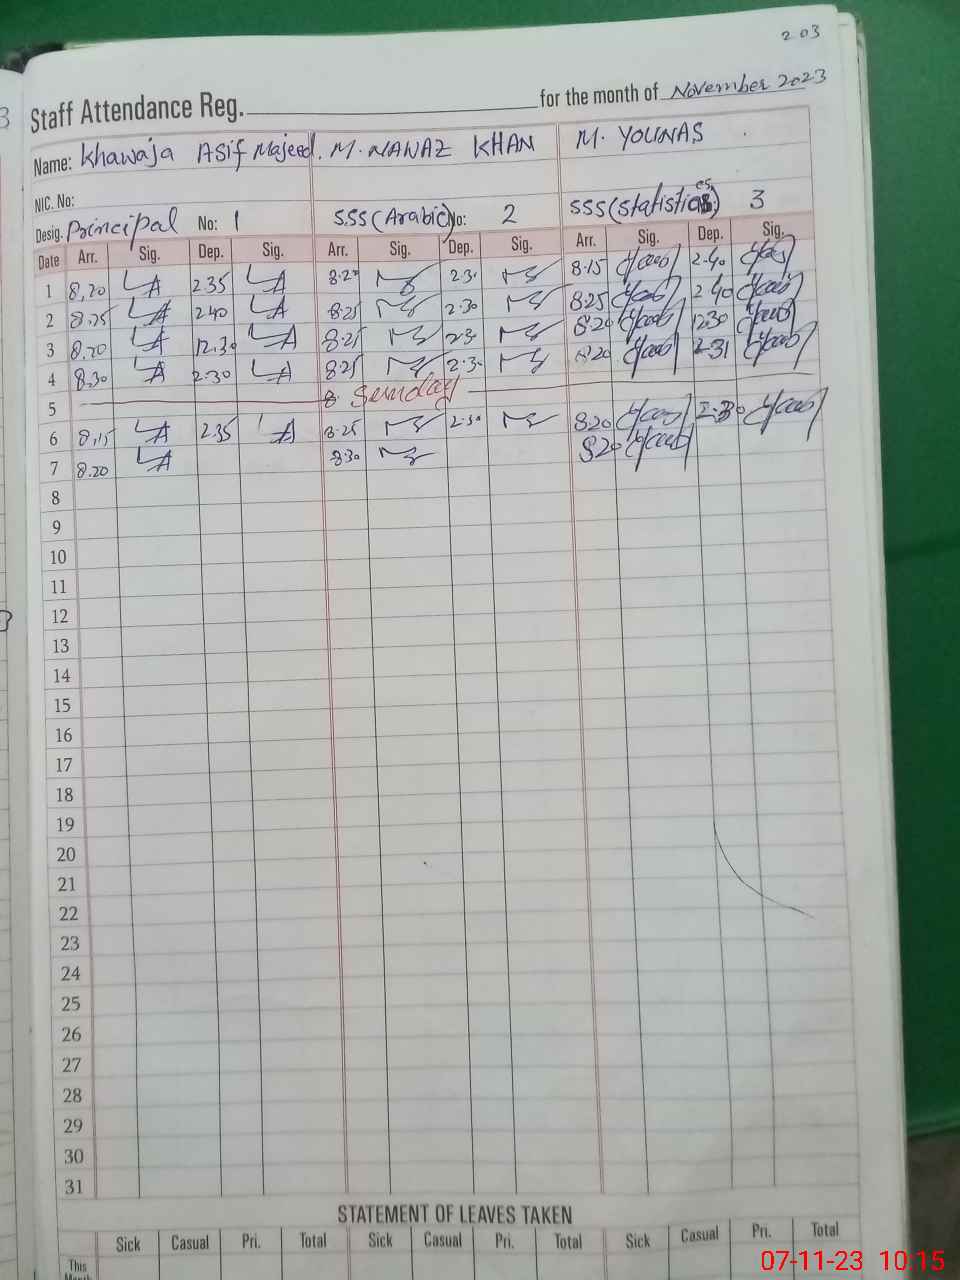 203
Staff Attendance Reg. for the month of November 2023
Name: Khawaja Asif Majeed. M. NAWAZ KHAN M. YOUNAS
NIC. No:
Desig. Principal No: 1 SSS (Arabic) No: 2 SSS (Statistics) 3
Date Arr. Sig. Dep. Sig. Arr. Sig. Dep. Sig. Arr. Sig. Dep. Sig.
1 8.20 2.35 2.3 8.15 2.40
2 8.25 2.40 8.25 2.30 8.25 2.40
3 8.20 12.30 8.25 8.20 12.30
4 8.30 2.30 8.25 2.3 8.20 2.31
5 Sunday
6 8.15 2.35 8.25 2.30 8.20 2.30
7 8.20 8.30 8.20
8
9
10
11
12
13
14
15
16
17
18
19
20
21
22
23
24
25
26
27
28
29
30
31
STATEMENT OF LEAVES TAKEN
Sick Casual Pri. Total Sick Casual Pri. Total Sick Casual Pri. Total
This
07-11-23 10:15